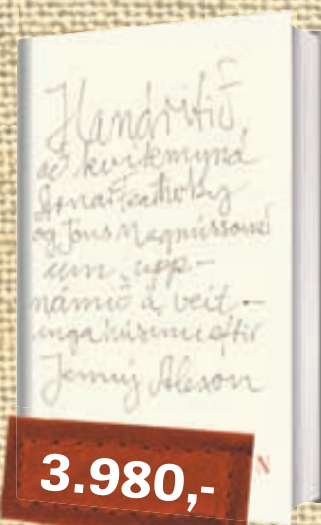 Handritið
að kvikmynd
Arnar Featherby
og Jóns Magnússonar
um upp-
námið á veit-
ingahúsinu eftir
Jenný Alexson
N
3.980,-